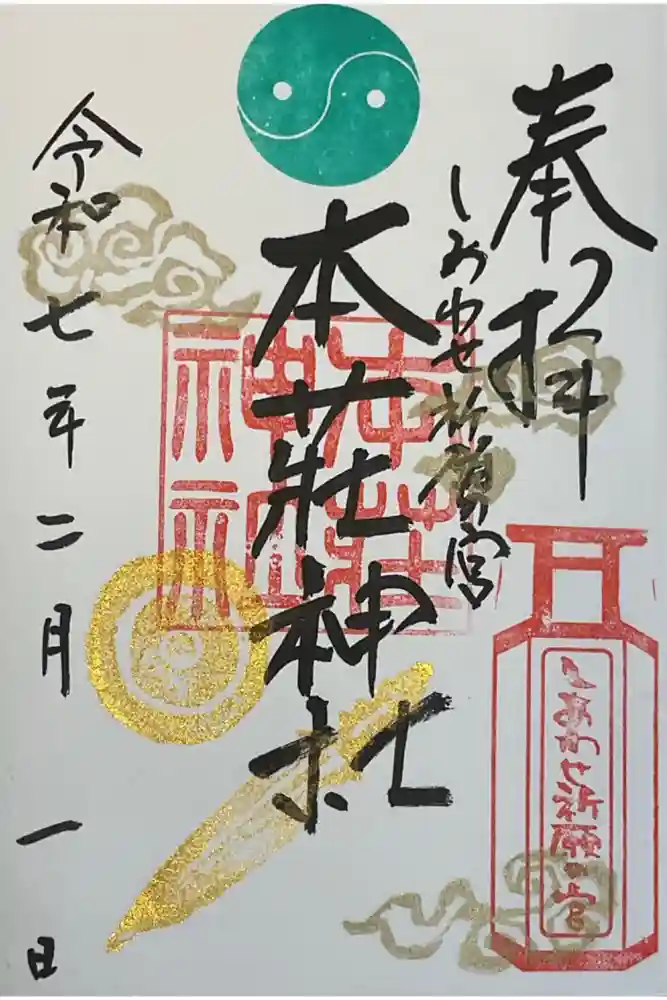 奉拝
しあわせ祈願の宮
しあわせ祈願の宮
本荘神社
本荘神社
令和七年二月一日